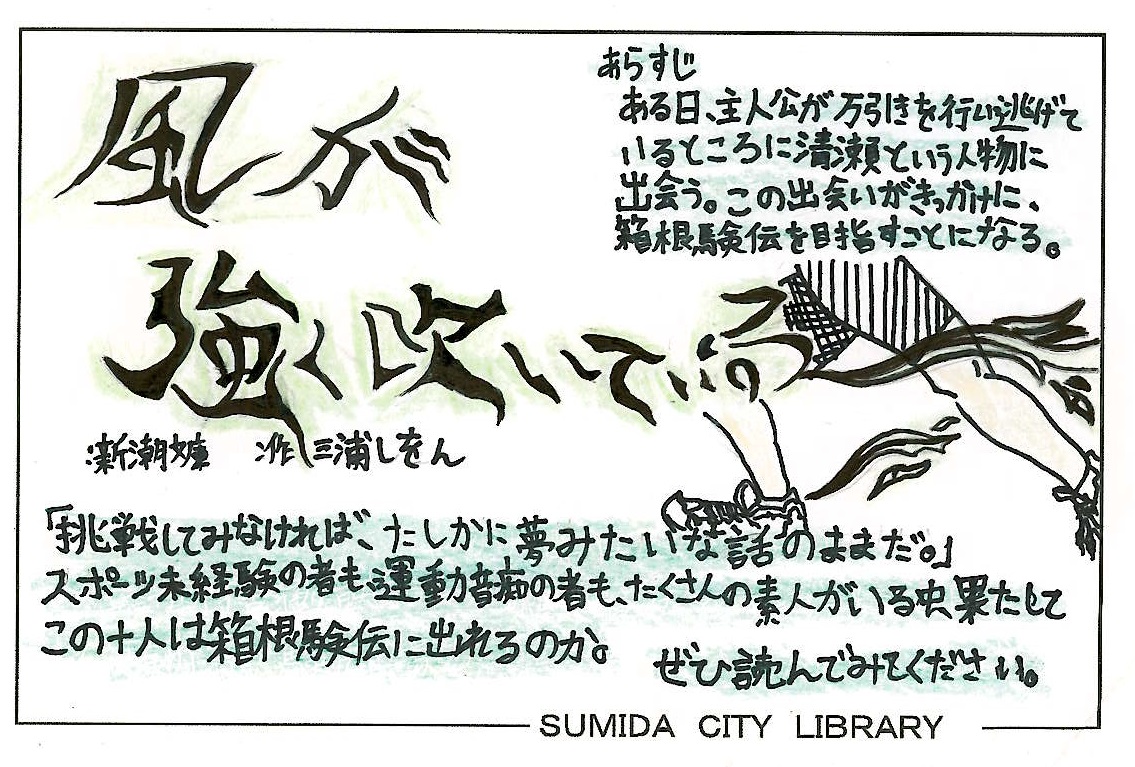 風が
強く吹いている
新潮文庫 作 三浦しをん
あらすじ
ある日、主人公が万引きを行い逃げて
いるところに清瀬という人物に
出会う。この出会いがきっかけに、
箱根駅伝を目指すことになる。
「挑戦してみなければ、たしかに夢みたいな話のままだ。」
スポーツ未経験の者も、運動音痴の者も、たくさんの素人がいる中、果たして
この十人は箱根駅伝に出れるのか。
ぜひ読んでみてください。
SUMIDA CITY LIBRARY